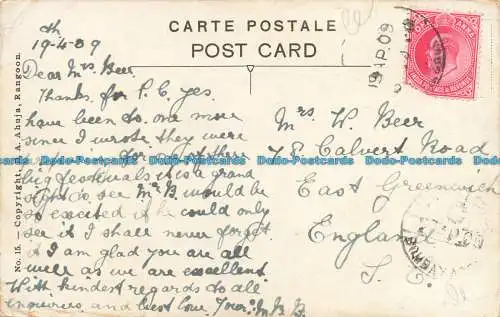 CARTE POSTALE
POST CARD
19-4-09
Dear Mrs Beer
Thanks for P.C. yes
have been to one more
since I wrote they were
big festivals it is a grand
sight to see Mr B. would be
so excited if he could only
see it I shall never forget
it I am glad you are all
well as we are excellent
With kindest regards to all
enquiries and best love Your
Mrs W. Beer
78 Calvert Road
East Greenwich
England
S.E.
No. 15. — Copyright, D. A. Ahuja, Rangoon.
ONE ANNA
AP.09
Do-Postcards Do-Postcards.com Do-Postcards Do-Postcards.com